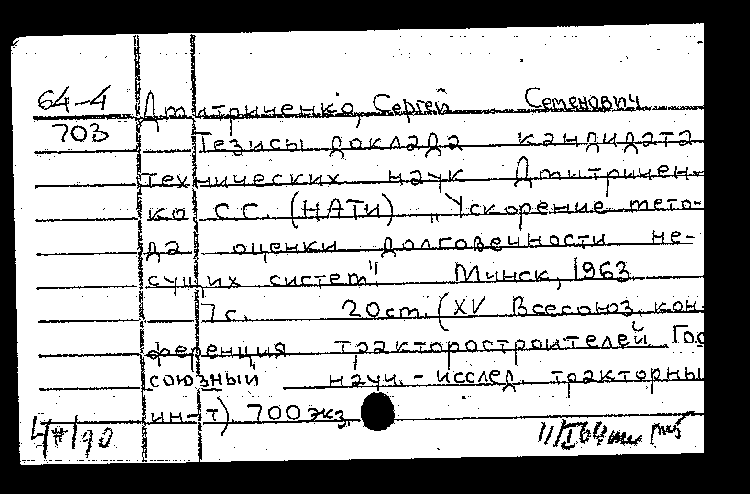 64-4 Дмитриченко, Сергей Семенович
703 Тезисы доклада кандидата
технических наук Дмитричен-
ко С.С. (НАТИ) „Ускорение мето-
да оценки долговечности не-
сущих систем" Минск, 1963
7 с. 20 см. (XV Всесоюз. кон-
ференция тракторостроителей Гос
союзный науч.-исслед. тракторны
ин-т) 700 экз.